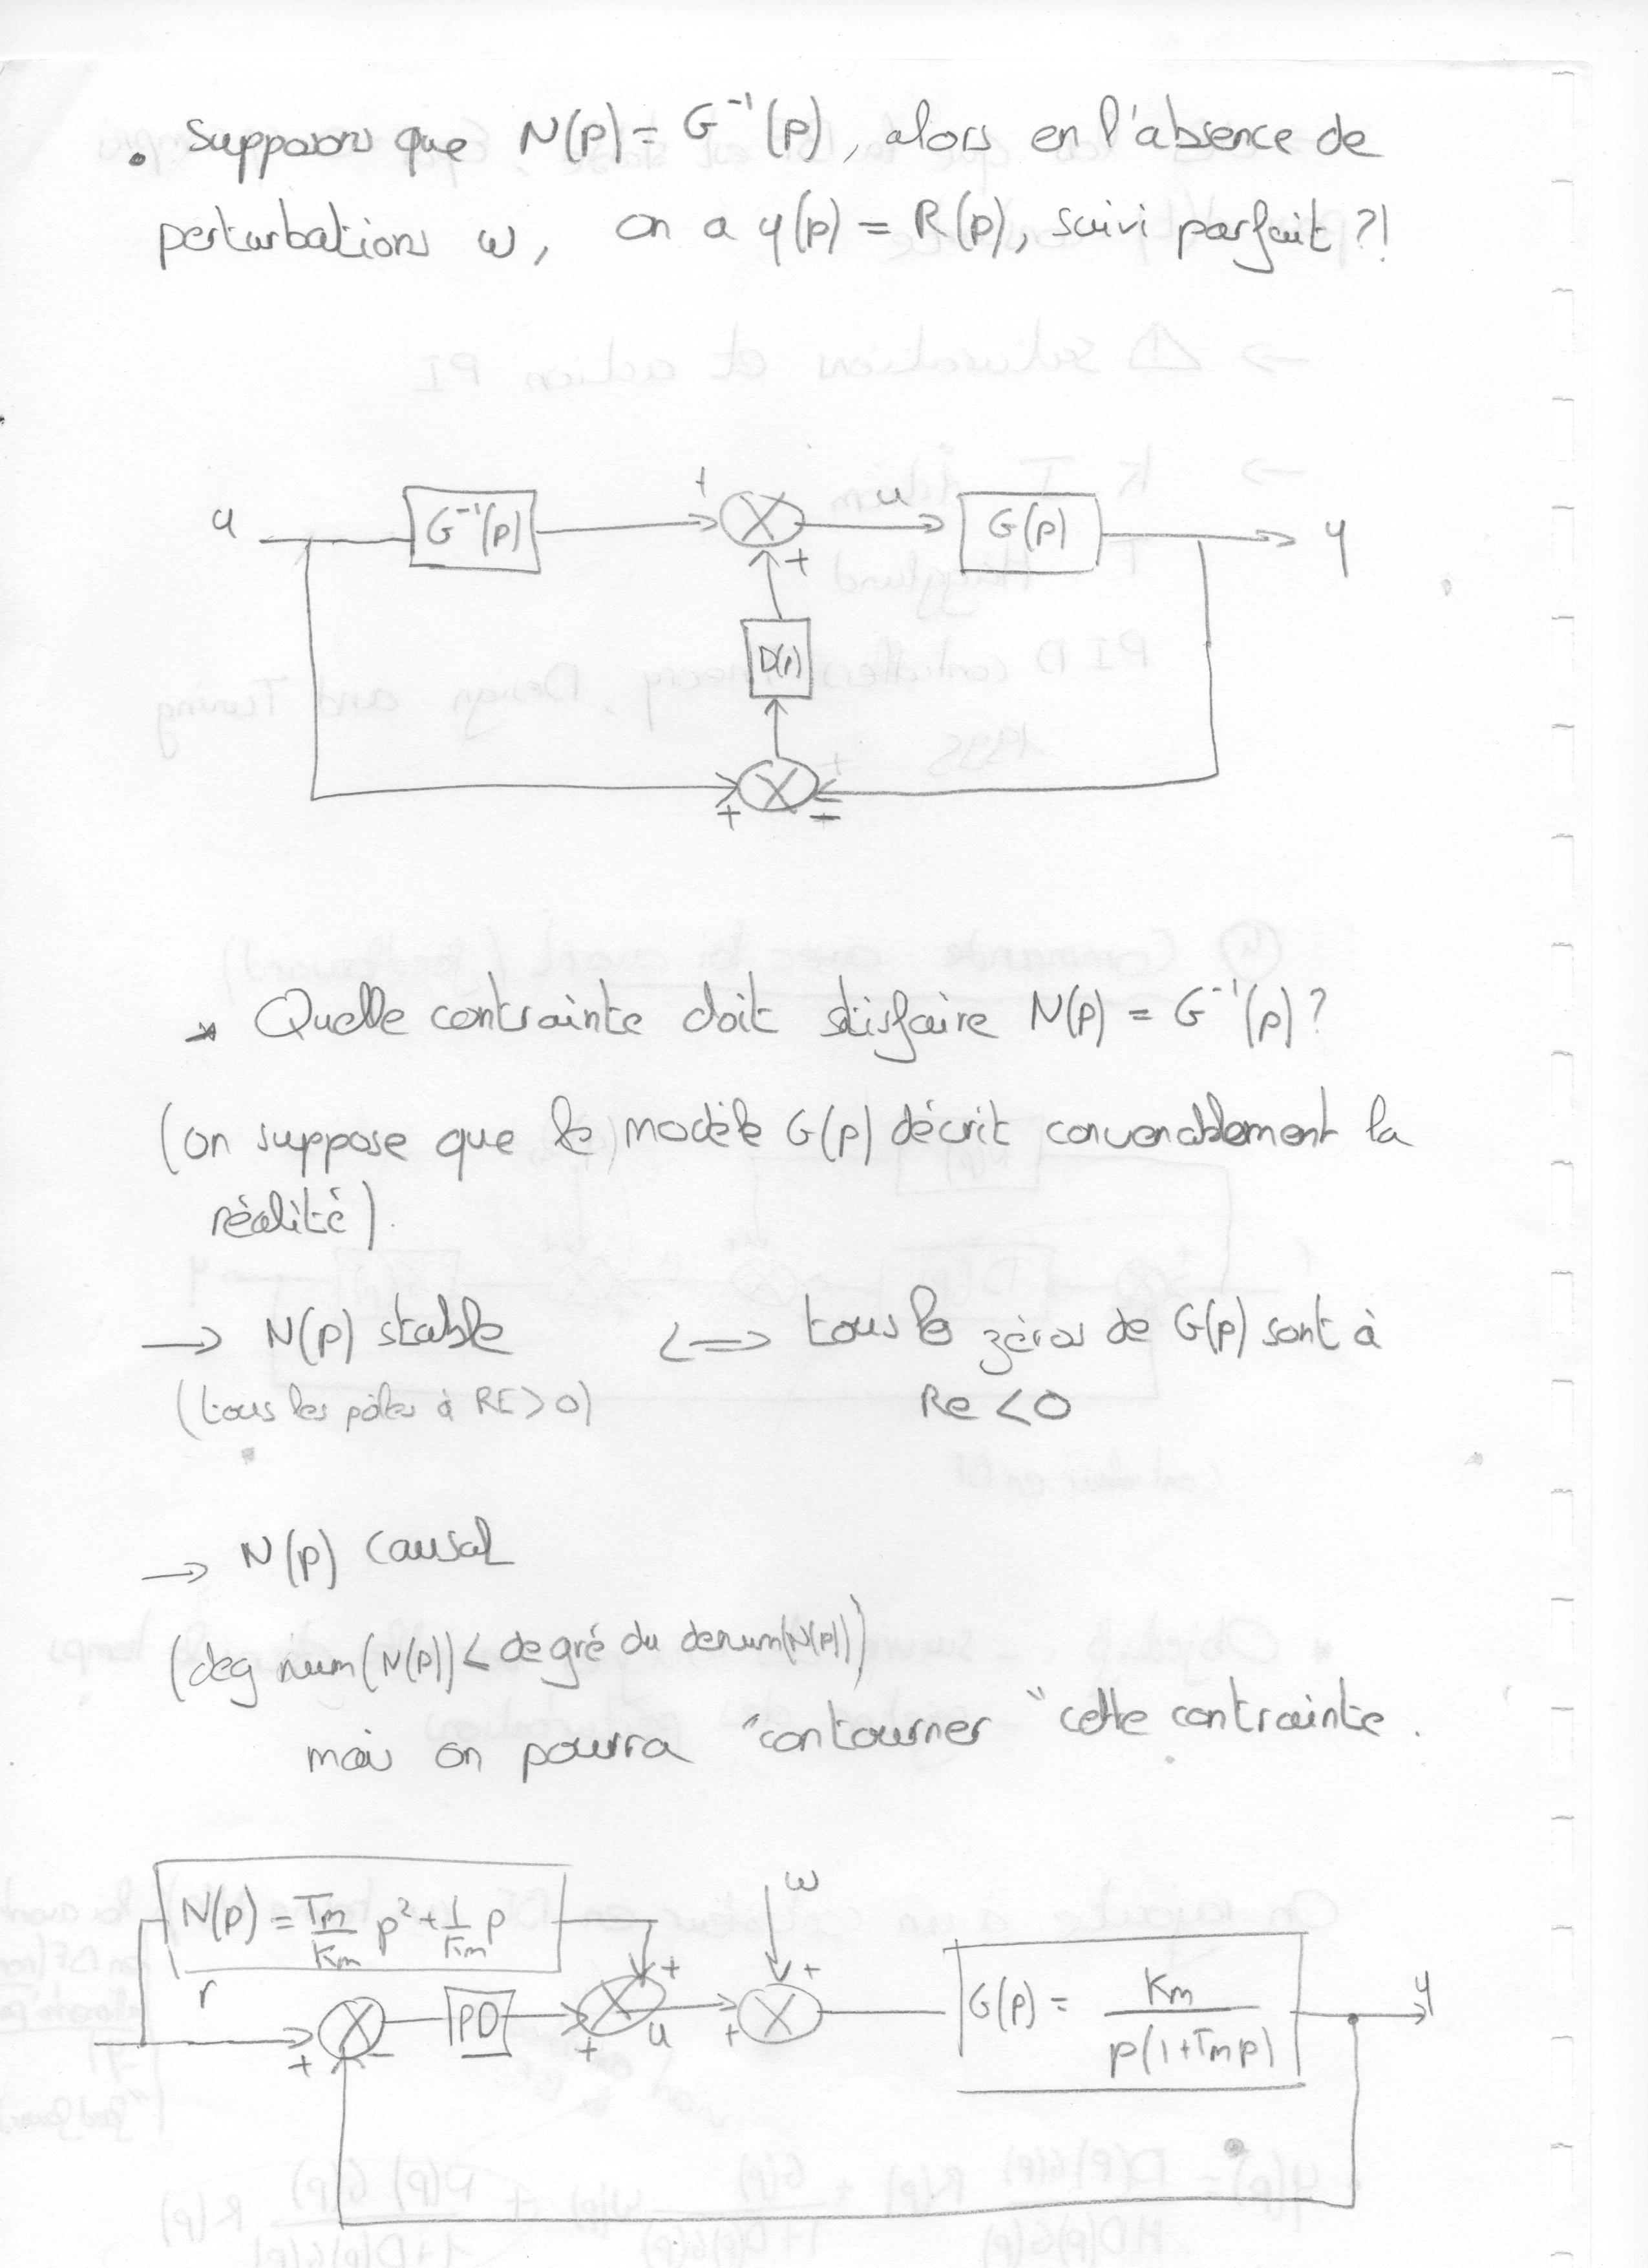 • Supposons que N(p) = G⁻¹(p), alors en l'absence de
perturbations ω, on a y(p) = R(p), suivi parfait ?!
u G⁻¹(p) + u G(p) y
+
D(p)
+ −
* Quelle contrainte doit stisfaire N(p) = G⁻¹(p) ?
(on suppose que le modèle G(p) décrit convenablement la
réalité).
→ N(p) stable <=> tous les zéros de G(p) sont à
(tous les pôles à RE>0) Re <0
→ N(p) causal
(deg num(N(p)) < degré du denum(N(p)))
mais on pourra "contourner" cette contrainte.
ω
N(p) = Tm/Km p² + 1/Km p + +
r + − PD + u + G(p) = Km / p(1+Tmp) y